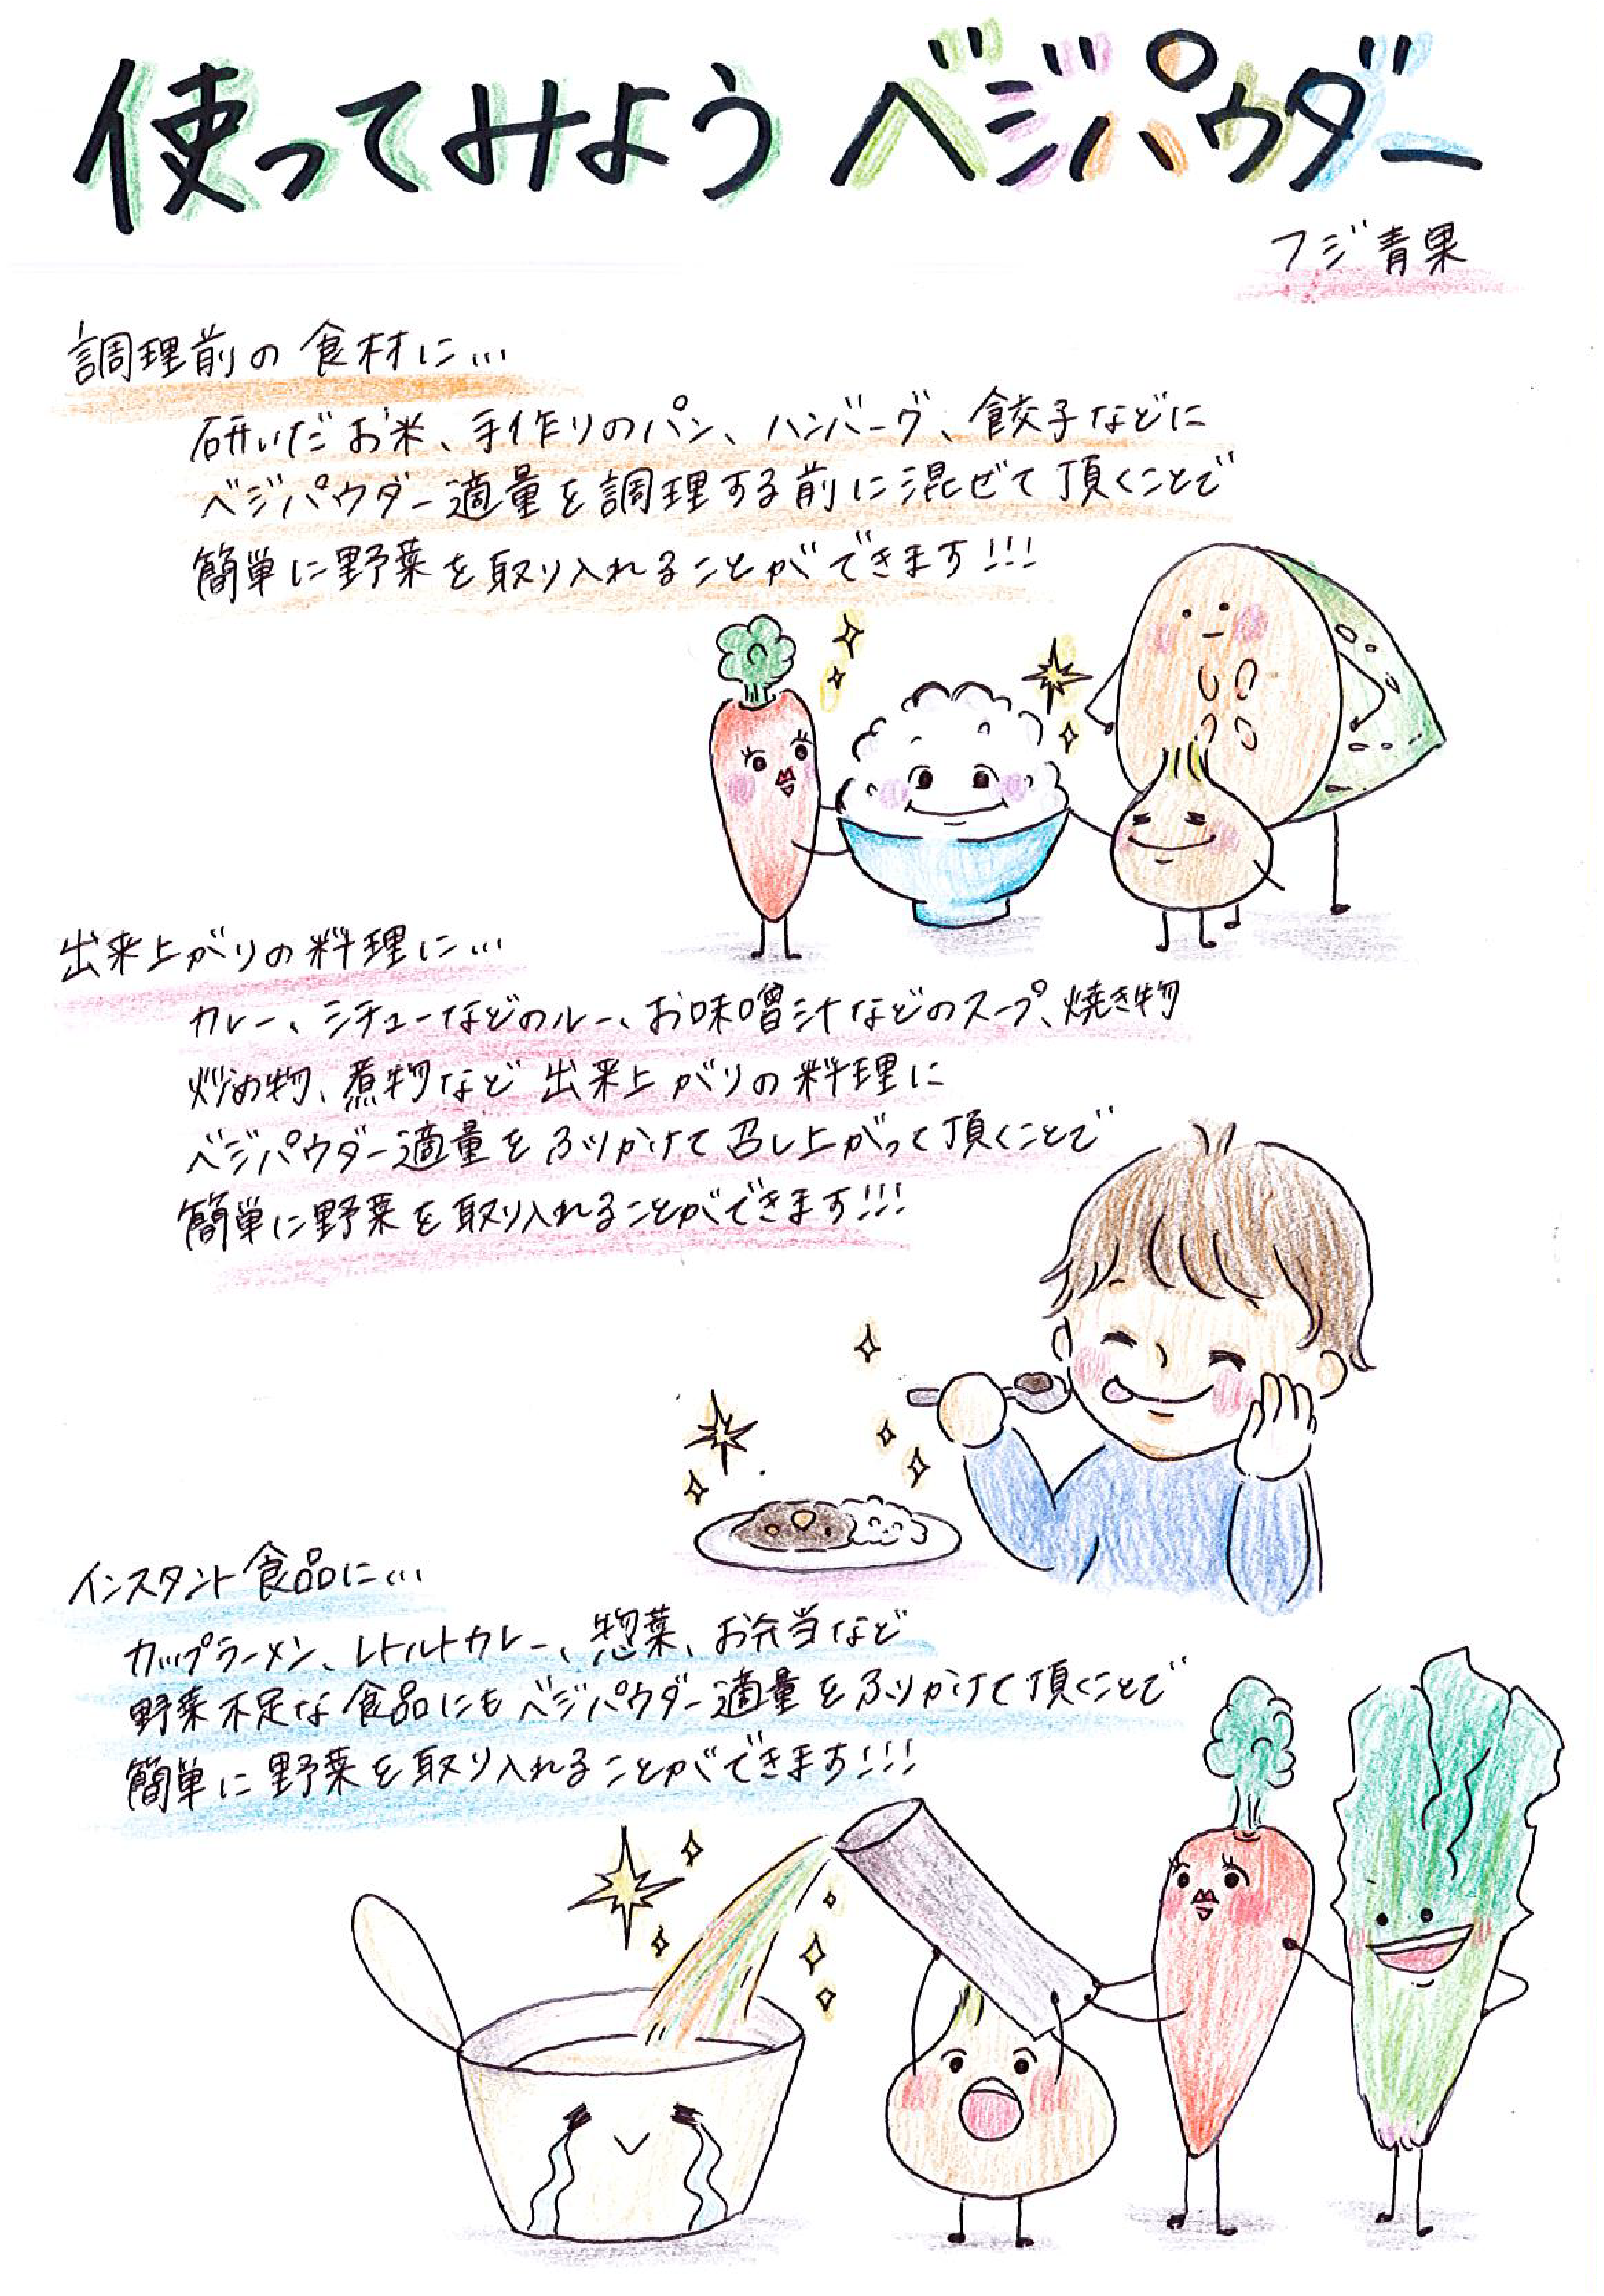 使ってみよう ベジパウダー
フジ青果
調理前の食材に...
研いだお米、手作りのパン、ハンバーグ、餃子などに
ベジパウダー適量を調理する前に混ぜて頂くことで
簡単に野菜を取り入れることができます!!!
出来上がりの料理に...
カレー、シチューなどのルー、お味噌汁などのスープ、焼き物
炒め物、煮物など出来上がりの料理に
ベジパウダー適量をふりかけて召し上がって頂くことで
簡単に野菜を取り入れることができます!!!
インスタント食品に...
カップラーメン、レトルトカレー、惣菜、お弁当など
野菜不足な食品にもベジパウダー適量をふりかけて頂くことで
簡単に野菜を取り入れることができます!!!